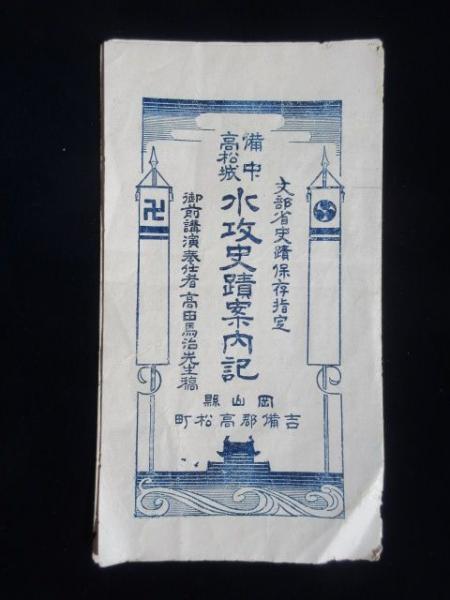 文部省史蹟保存指定
備中
高松城
水攻史蹟案内記
御前講演奉仕者 高田馬治先生稿
岡山縣
吉備郡高松町
卍